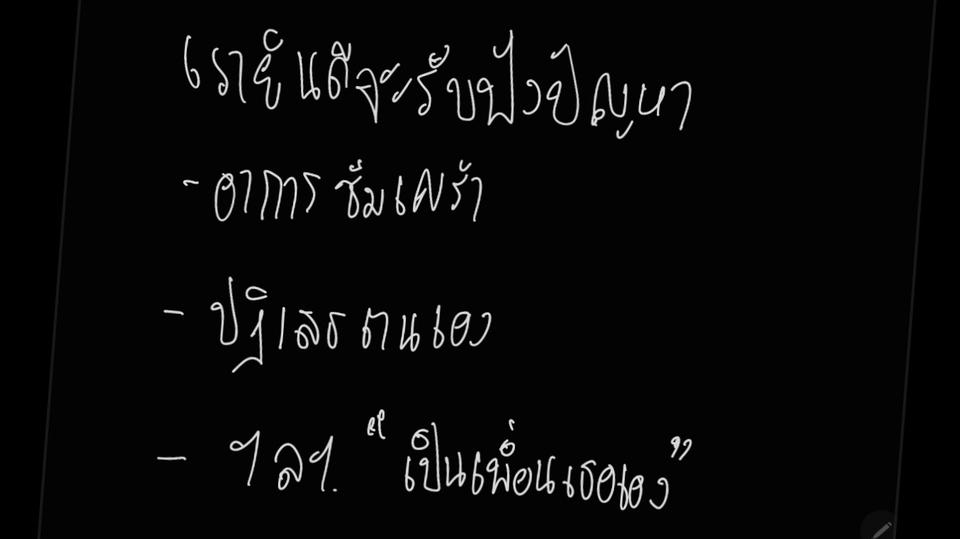 เรายินดีจะรับฟังปัญหา
- อาการซึมเศร้า
- ปฏิเสธตนเอง
- ฯลฯ. “เป็นเพื่อนเธอเอง”